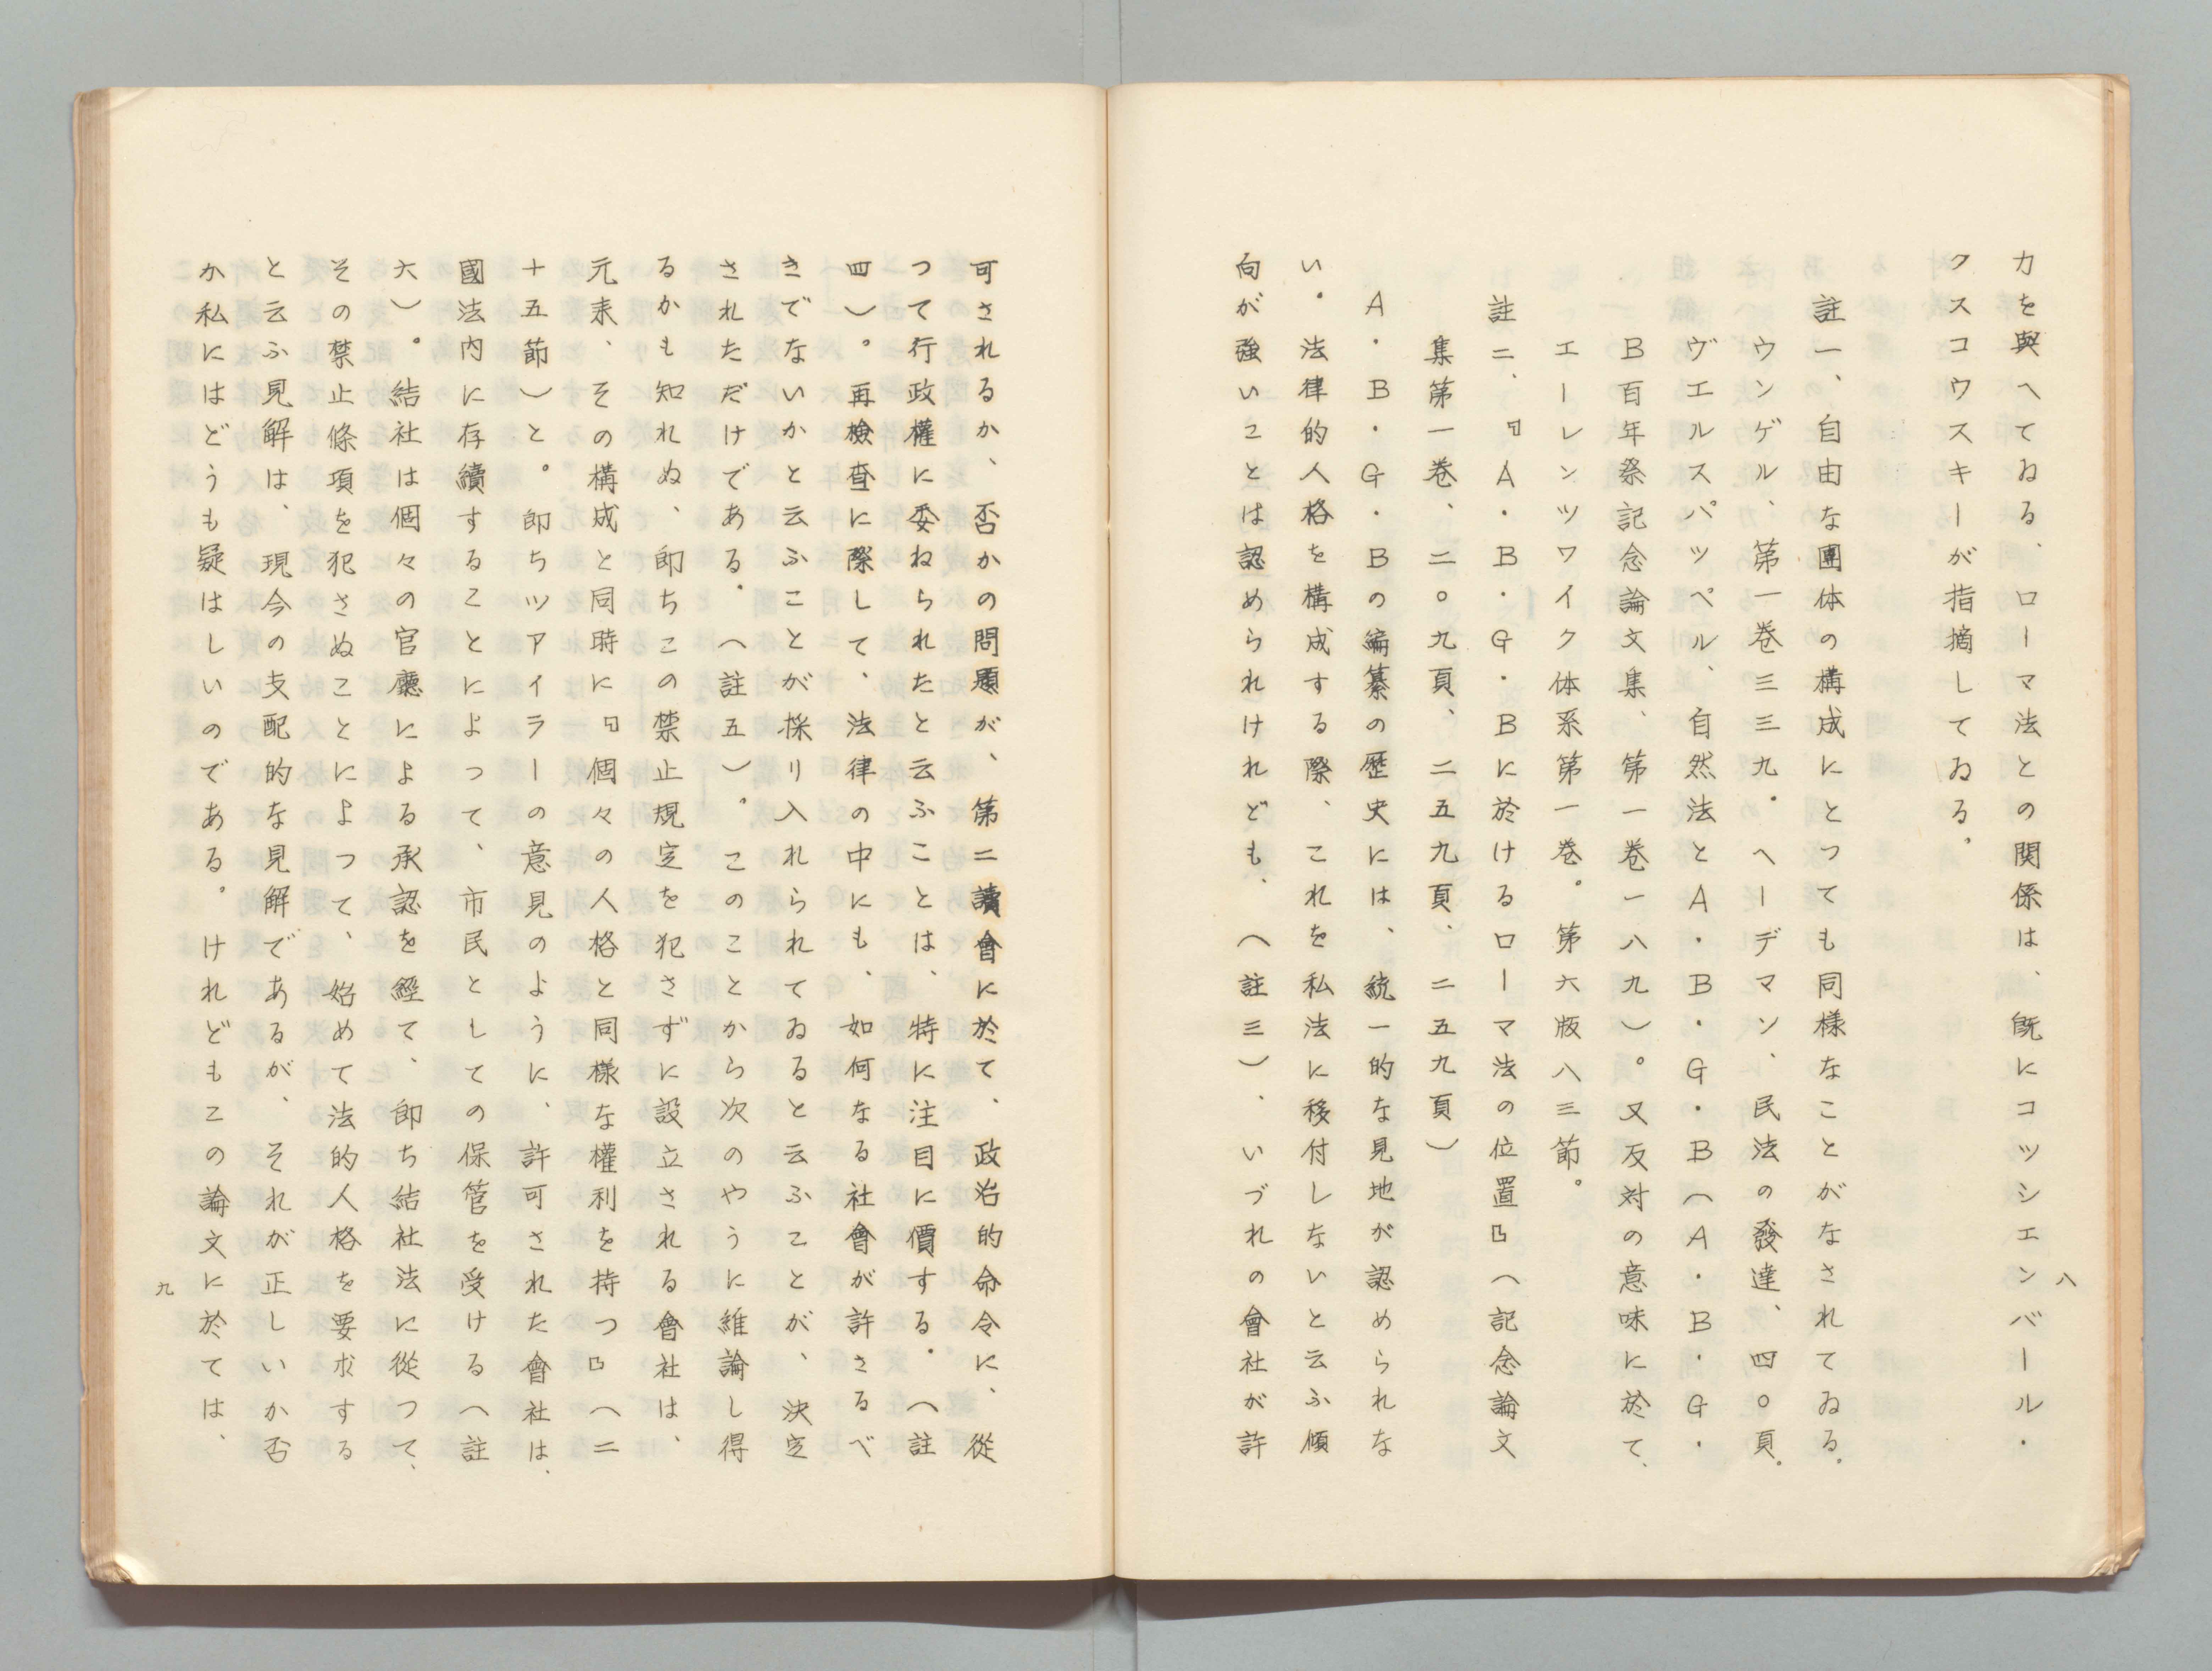 力を與へてゐる、ローマ法との関係は、既にコツシエンバール・
クスコウスキーが指摘してゐる。
註一、自由な團体の構成にとつても同様なことがなされてゐる。
ウンゲル、第一巻三三九。ヘーデマン、民法の發達、四〇頁。
ヴエルスパツペル、自然法とA・B・G・B（A・B・G・
B百年祭記念論文集、第一巻一八九）。又反対の意味に於て、
エーレンツワイク体系第一巻。第六版八三節。
註二、『A・B・G・Bに於けるローマ法の位置』（記念論文
集第一巻、二〇九頁、二五九頁、二五九頁）
A・B・G・Bの編纂の歴史には、統一的な見地が認められな
い。法律的人格を構成する際、これを私法に移付しないと云ふ傾
向が強いことは認められけれども、（註三）、いづれの會社が許
八
可されるか、否かの問題が、第二讀會に於て、政治的命令に、從
つて行政權に委ねられたと云ふことは、特に注目に價する。（註
四）。再檢查に際して、法律の中にも、如何なる社會が許さるべ
きでないかと云ふことが採り入れられてゐると云ふことが、決定
されただけである。（註五）。このことから次のやうに維論し得
るかも知れぬ、卽ちこの禁止規定を犯さずに設立される會社は、
元来、その構成と同時に『個々の人格と同様な權利を持つ』（二
十五節）と。卽ちツアイラーの意見のように、許可された會社は、
國法内に存續することによって、市民としての保管を受ける（註
六）。結社は個々の官廳による承認を經て、卽ち結社法に從つて、
その禁止條項を犯さぬことによつて、始めて法的人格を要求する
と云ふ見解は、現今の支配的な見解であるが、それが正しいか否
か私にはどうも疑はしいのである。けれどもこの論文に於ては、
九